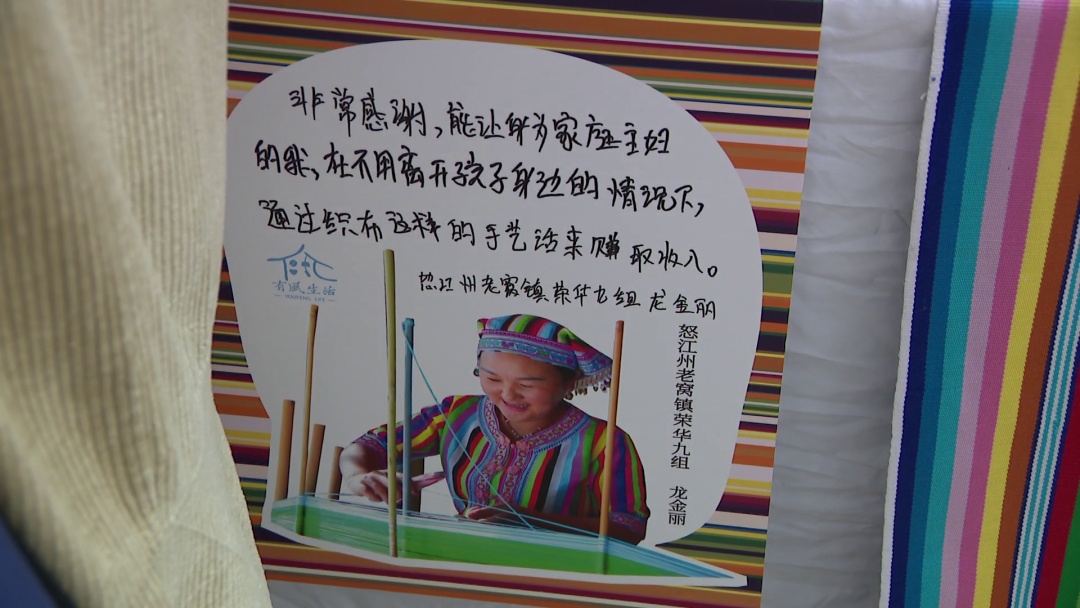 非常感谢，能让身为家庭主妇
的我，在不用离开孩子身边的情况下，
通过织布这样的手艺活来赚取收入。
怒江州老窝镇荣华九组 龙金丽
有风生活
YOUFENG LIFE
怒江州老窝镇荣华九组 龙金丽